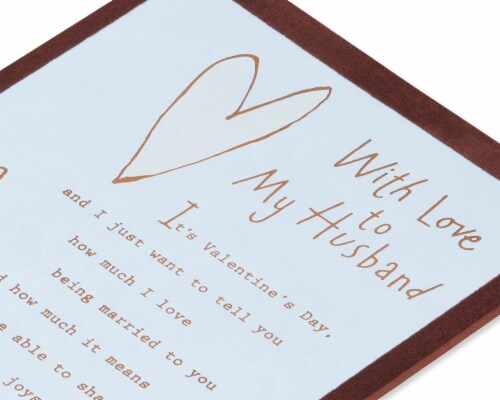 With Love
to
My Husband
It's Valentine's Day,
and I just want to tell you
how much I love
being married to you
how much it means
able to
joys